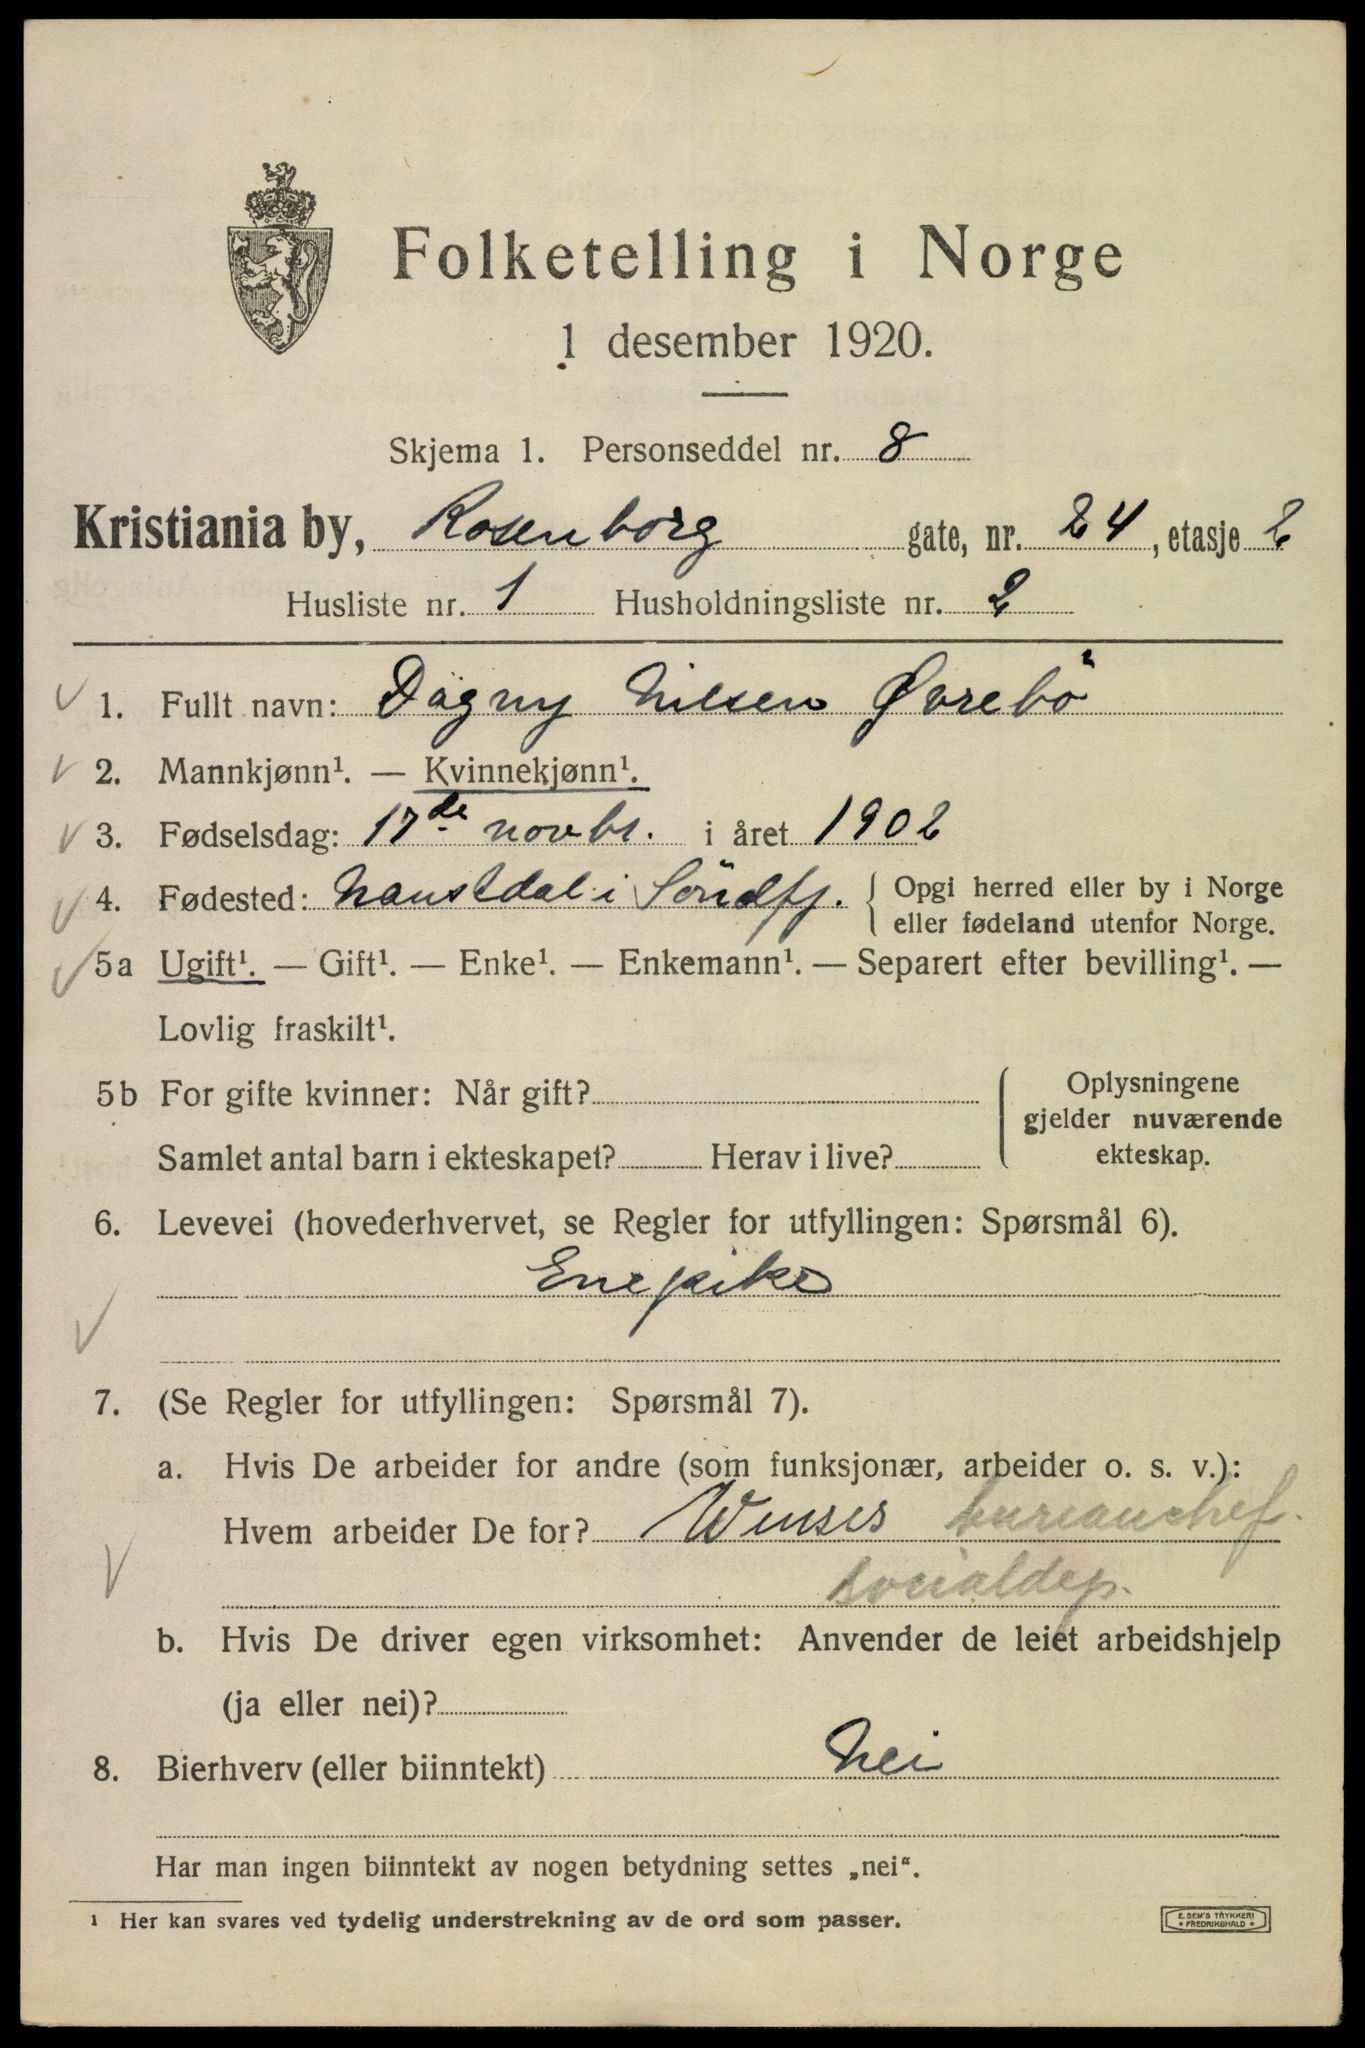 Folketelling i Norge
1 desember 1920.
Skjema 1. Personseddel nr. 8
Kristiania by, Rosenborg gate, nr. 24, etasje 2
Husliste nr. 1 Husholdningsliste nr. 2
1. Fullt navn: Dagny Nilsen Øvrebö
2. Mannkjønn¹. — Kvinnekjønn¹.
3. Fødselsdag: 17de novbr. i året 1902
4. Fødested: Naustdal i Söndfj. { Opgi herred eller by i Norge
eller fødeland utenfor Norge.
5a Ugift¹. — Gift¹. — Enke¹. — Enkemann¹. — Separert efter bevilling¹. —
Lovlig fraskilt¹.
5b For gifte kvinner: Når gift?
Samlet antal barn i ekteskapet? Herav i live?
Oplysningene
gjelder nuværende
ekteskap.
6. Levevei (hovederhvervet, se Regler for utfyllingen: Spørsmål 6).
Enepike
7. (Se Regler for utfyllingen: Spørsmål 7).
a. Hvis De arbeider for andre (som funksjonær, arbeider o. s. v.):
Hvem arbeider De for? bureauchef.
socialdep.
b. Hvis De driver egen virksomhet: Anvender de leiet arbeidshjelp
(ja eller nei)?
8. Bierhverv (eller biinntekt) Nei
Har man ingen biinntekt av nogen betydning settes „nei“.
¹ Her kan svares ved tydelig understrekning av de ord som passer.
E. SEM'S TRYKKERI
FREDRIKSHALD